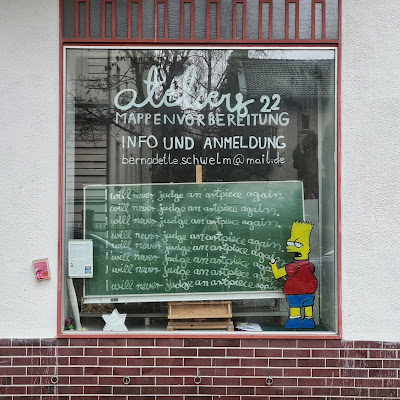 ateliers 22
MAPPENVORBEREITUNG
INFO UND ANMELDUNG
bernadette.schwelm@mail.de
I will never judge an artpiece again.
I will never judge an artpiece again.
I will never judge an artpiece again.
I will never judge an artpiece again.
I will never judge an artpiece again.
I will never judge an artpiece again.
I will never judge an artpiece again.
I will never judge an artpiece again.